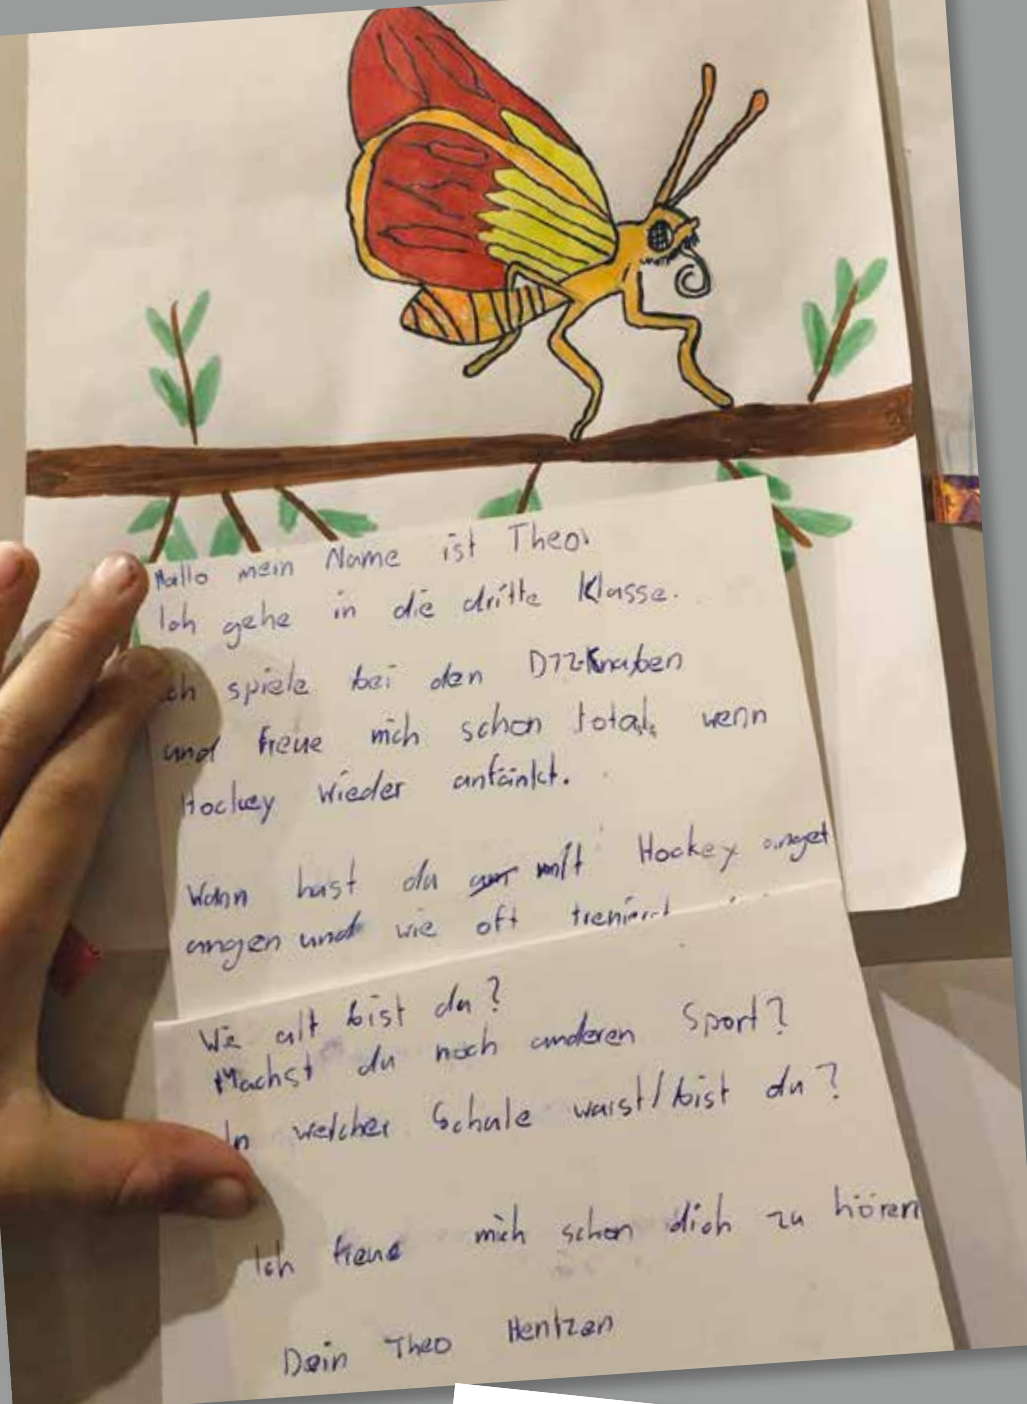 Hallo mein Name ist Theo.
Ich gehe in die dritte Klasse.
Ich spiele bei den D12-Knaben
und freue mich schon total, wenn
Hockey wieder anfänkt.
Wann hast du mit Hockey anget
angen und wie oft
Wie alt bist du?
Machst du noch anderen Sport?
In welcher Schule warst/bist du?
Ich freue mich schon dich zu hören
Dein Theo Hentzen